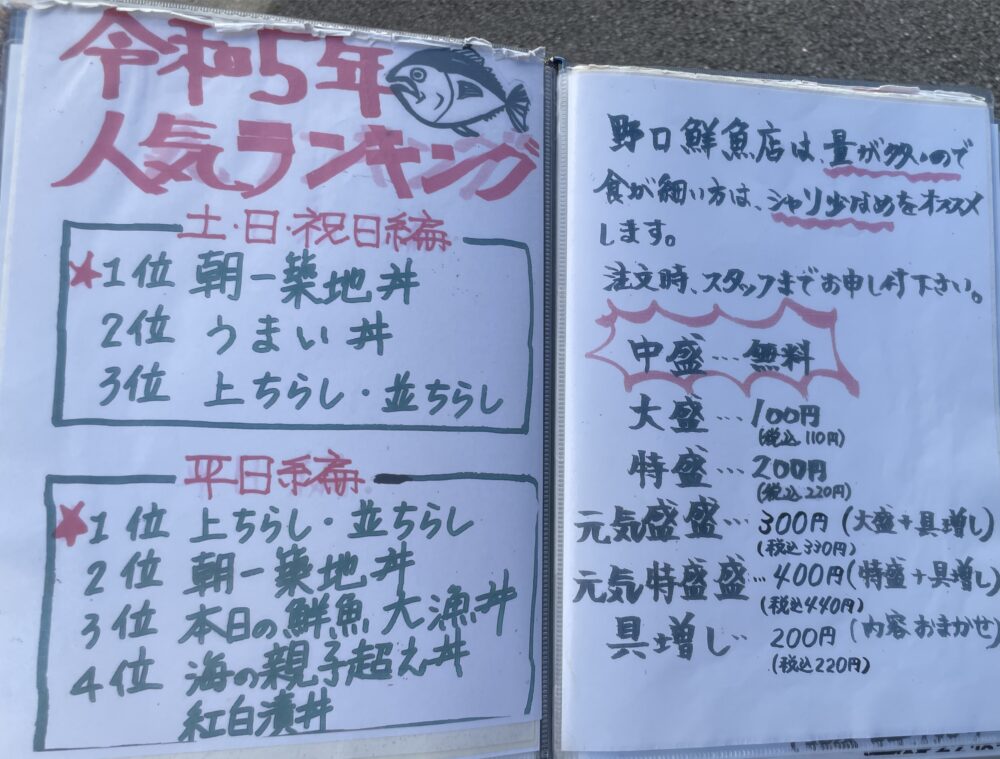 令和5年
人気ランキング
土・日・祝日編
★1位 朝一築地丼
2位 うまい丼
3位 上ちらし・並ちらし
平日編
★1位 上ちらし・並ちらし
2位 朝一築地丼
3位 本日の鮮魚大漁丼
4位 海の親子超え丼
紅白漬丼
野口鮮魚店は、量が多いので
食が細い方は、シャリ少なめをオススメ
します。
注文時、スタッフまでお申し付下さい。
中盛…無料
大盛…100円
(税込110円)
特盛…200円
(税込220円)
元気盛盛…300円(大盛+具増し)
(税込330円)
元気特盛盛…400円(特盛+具増し)
(税込440円)
具増し… 200円(内容おまかせ)
(税込220円)